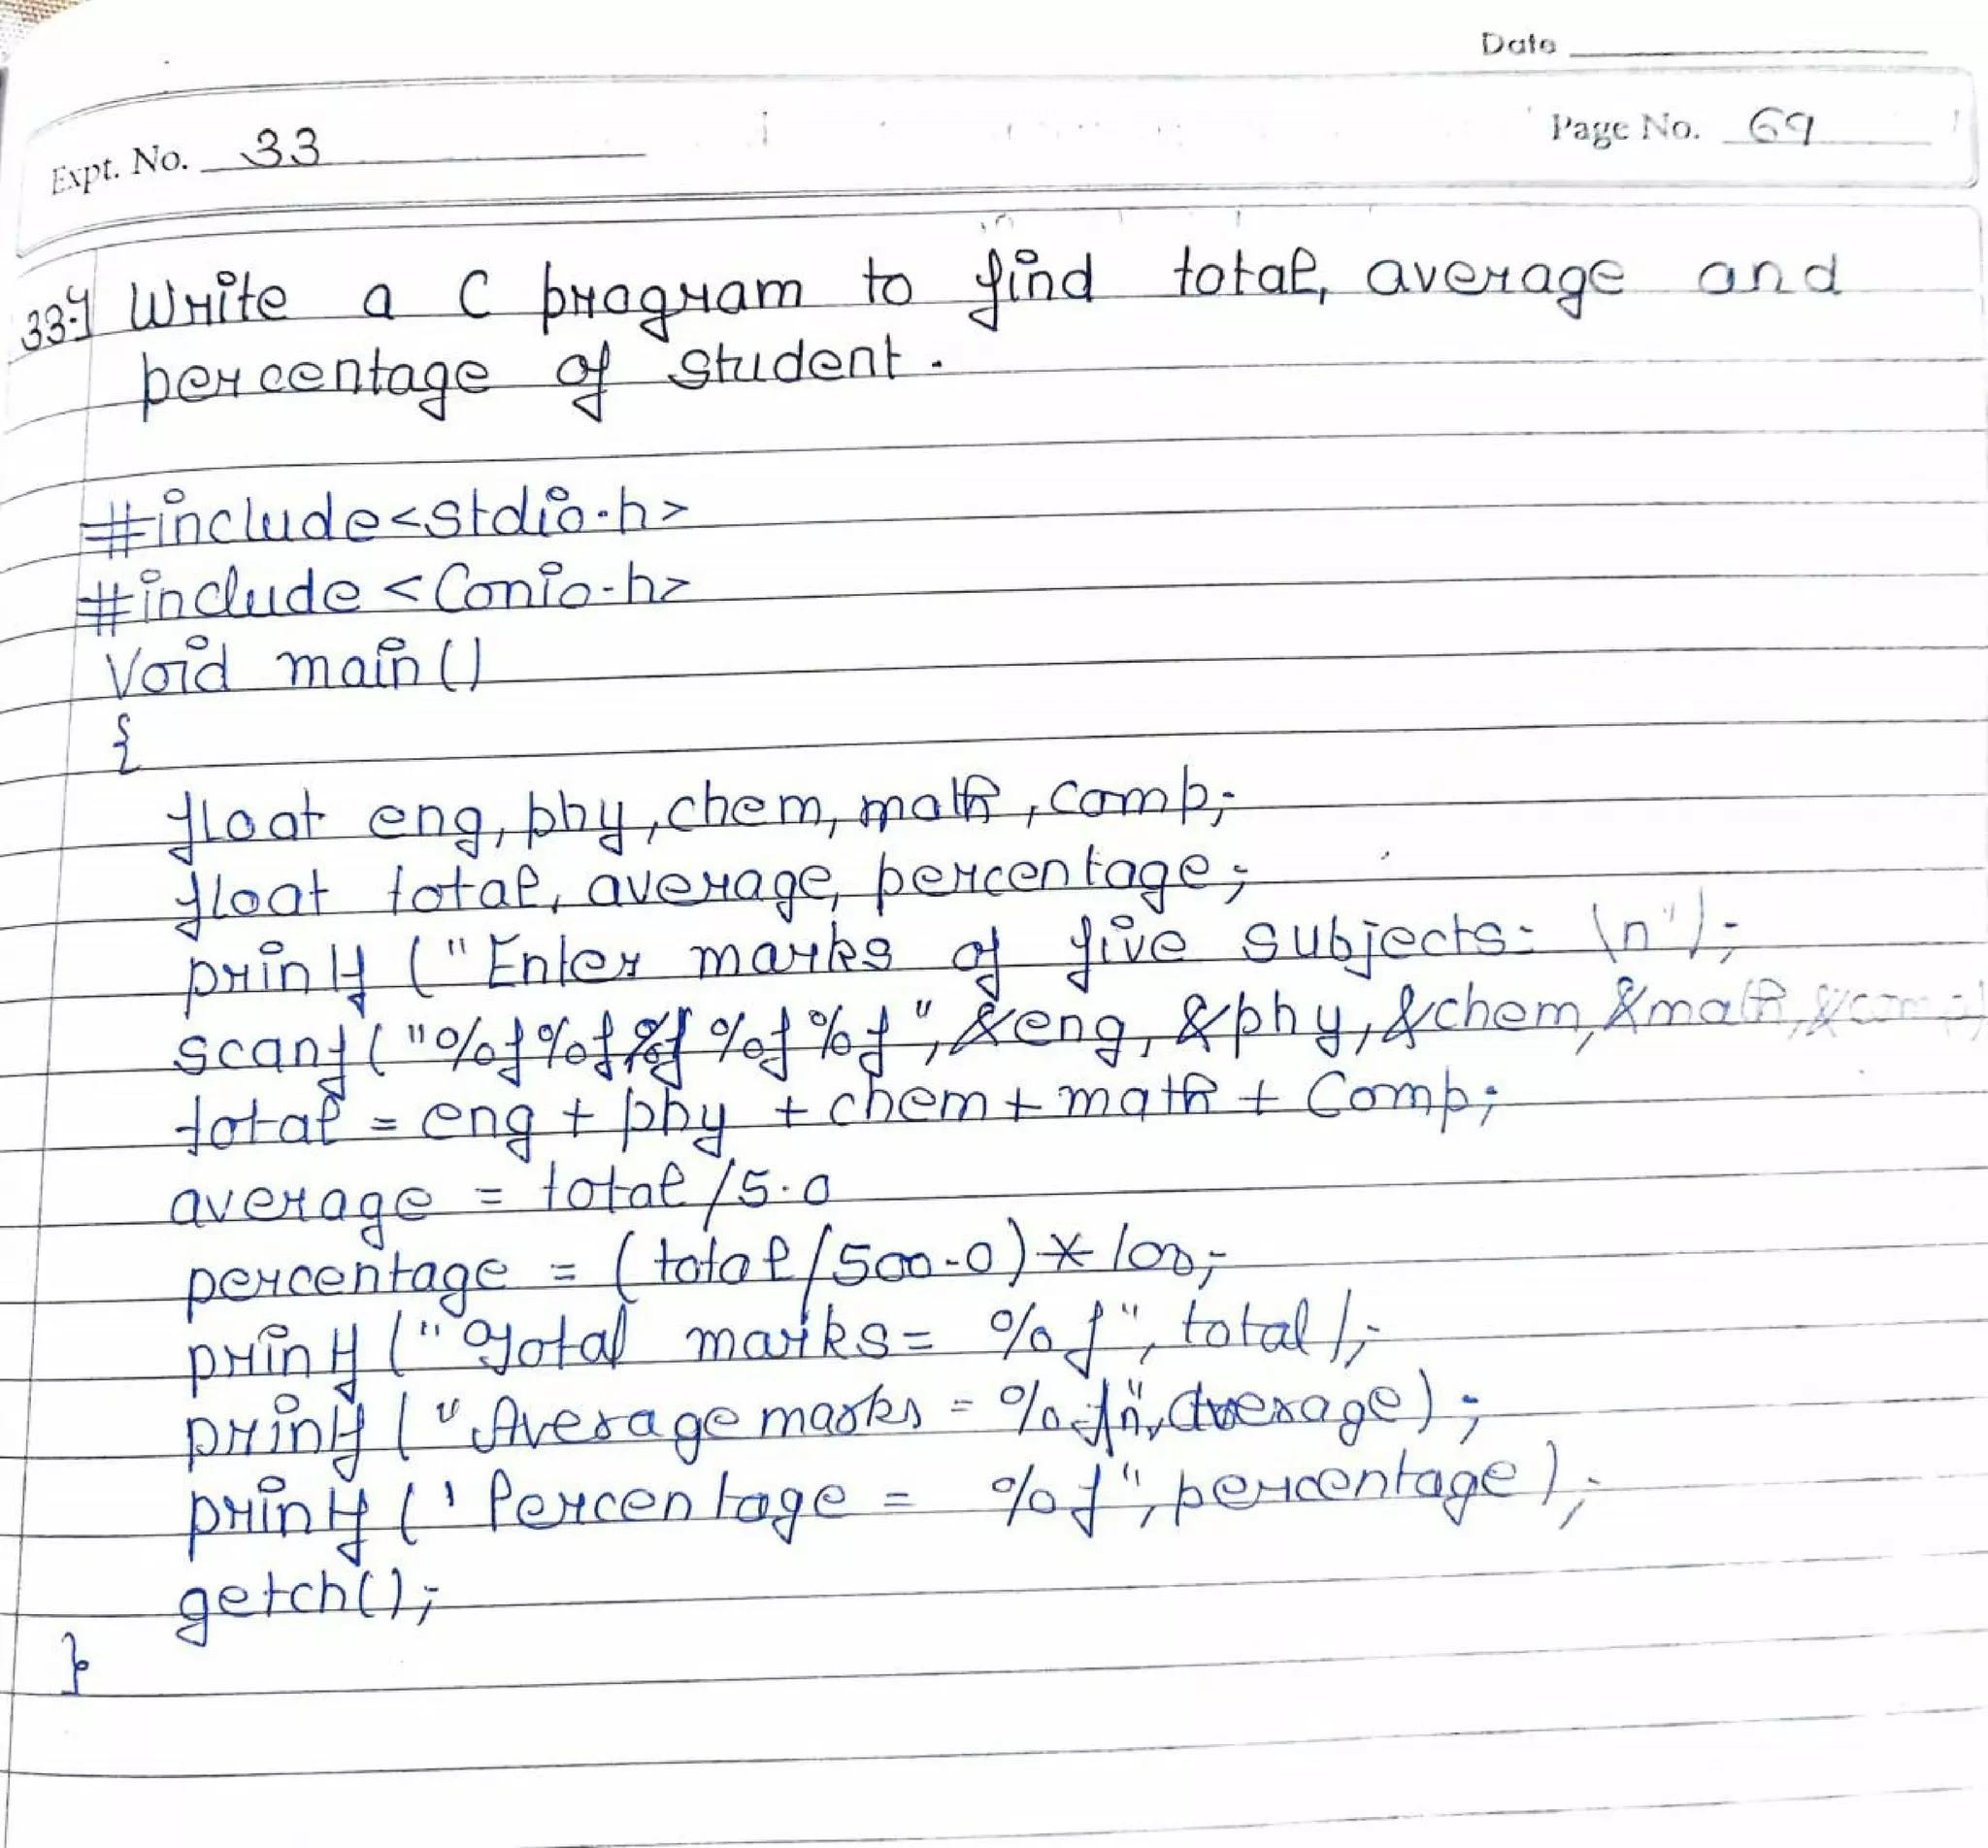 Date
Expt. No. 33
Page No. 69
33.) Write a C program to find total, average and
percentage of student.
#include<stdio.h>
#include <Conio.h>
Void main()
{
float eng, phy, chem, math, comp;
float total, average, percentage;
printf ("Enter marks of five subjects: \n");
scanf ("%f%f%f%f%f", &eng, &phy, &chem, &math, &comp)
total = eng + phy + chem + math + Comp;
average = total /5.0
percentage = (total/500.0)*100;
printf ("Total marks= %f", total);
printf ("Average marks = %f\n", average);
printf (' Percentage = %f", percentage);
getch();
}